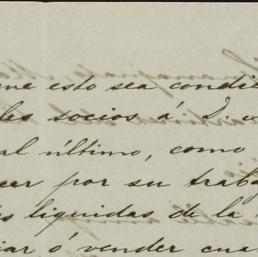 que esto sea condic
les socios á D.
al último, como
cer por su traba
ás liquidas de la
iar ó vender cua